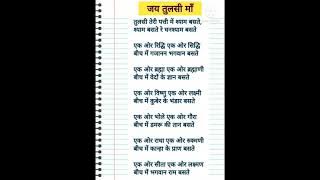 जय तुलसी माँ
तुलसी तेरी पत्ती में श्याम बसते,
श्याम बसते रे घनश्याम बसते
एक ओर रिद्धि एक ओर सिद्धि
बीच में गजानन भगवान बसते
एक ओर ब्रह्मा एक ओर ब्रह्माणी
बीच में वेदों के ज्ञान बसते
एक ओर विष्णु एक ओर लक्ष्मी
बीच में कुबेर के भंडार बसते
एक ओर भोले एक ओर गौरा
बीच में डमरू की तान बसते
एक ओर राधा एक ओर रुक्मणी
बीच में कान्हा के प्राण बसते
एक ओर सीता एक ओर लक्ष्मण
बीच में भगवान राम बसते